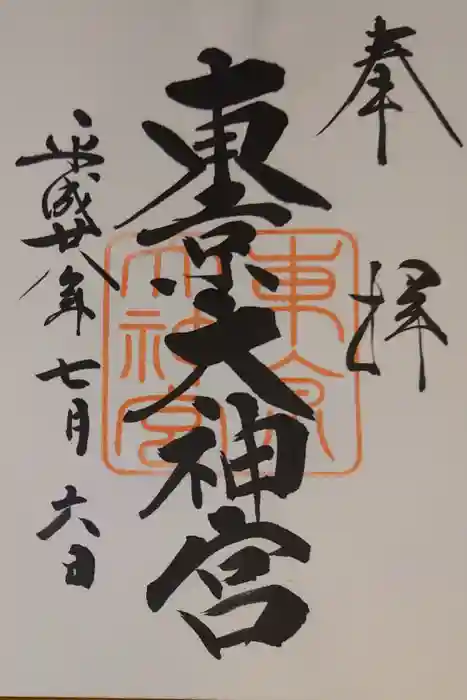 奉拝
東京大神宮
平成廿八年七月六日
東京大神宮